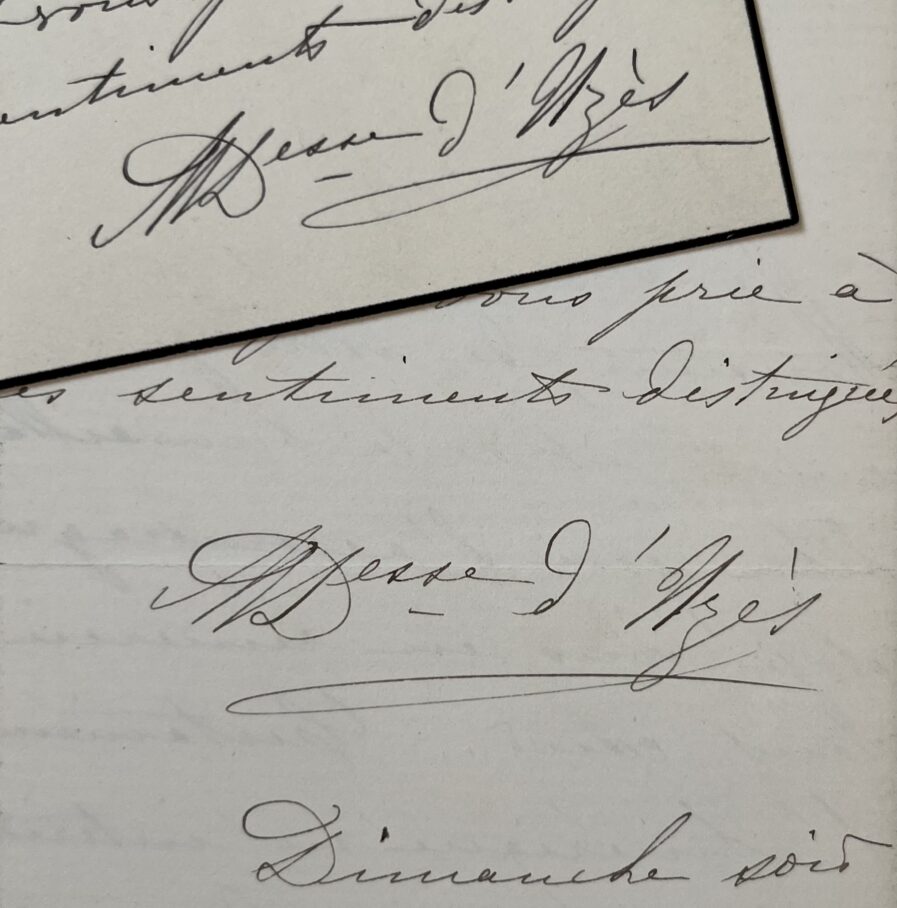 sentiments dis
MDesse d'Uzès
vous prie à
es sentiments distingués
MDesse d'Uzès
Dimanche soir